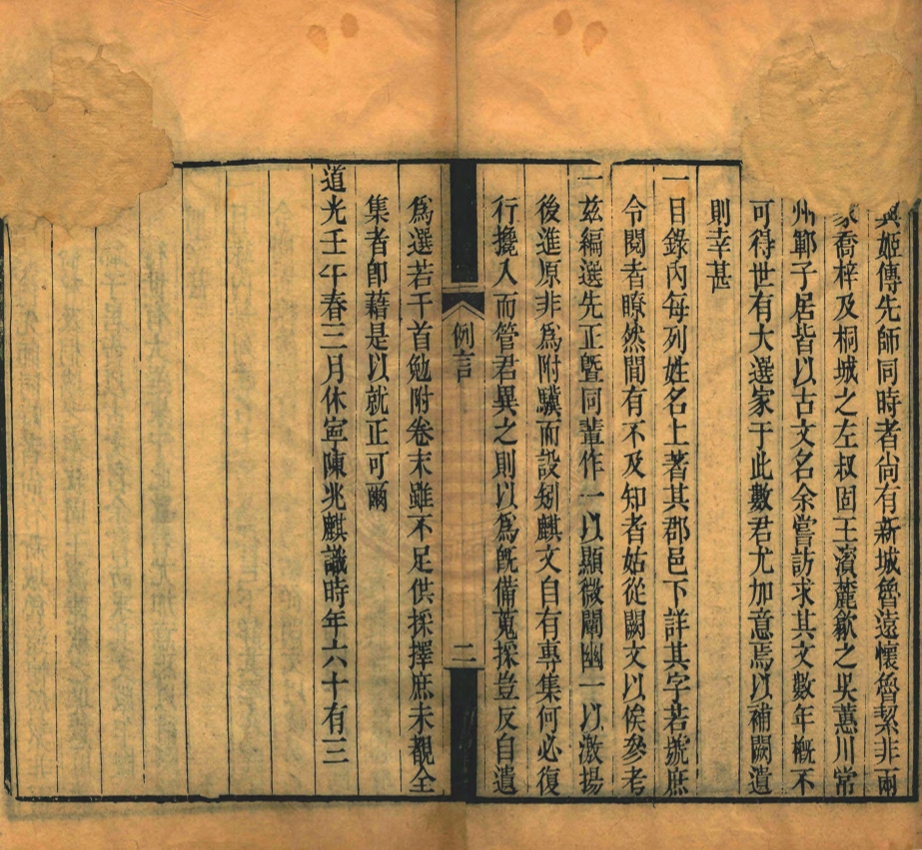 與姬傳先師同時者尚有新城魯遠懷魯絜非兩
家喬梓及桐城之左叔固王濱麓歙之吳蕙川常
州鄆子居皆以古文名余嘗訪求其文數年概不
可得世有大選家于此數君尤加意焉以補闕遺
則幸甚
一目錄內每列姓名上著其郡邑下詳其字若號庶
令閱者瞭然間有不及知者姑從闕文以俟參考
一茲編選先正暨同輩作一以顯微闡幽一以激揚
後進原非為附驥而設矧麒文自有專集何必復
行攙入而管君異之則以為旣備蒐採豈反自遺
例言
二
為選若干首勉附卷末雖不足供採擇庶未覩全
集者卽藉是以就正可爾
道光壬午春三月休寧陳兆麒識時年六十有三